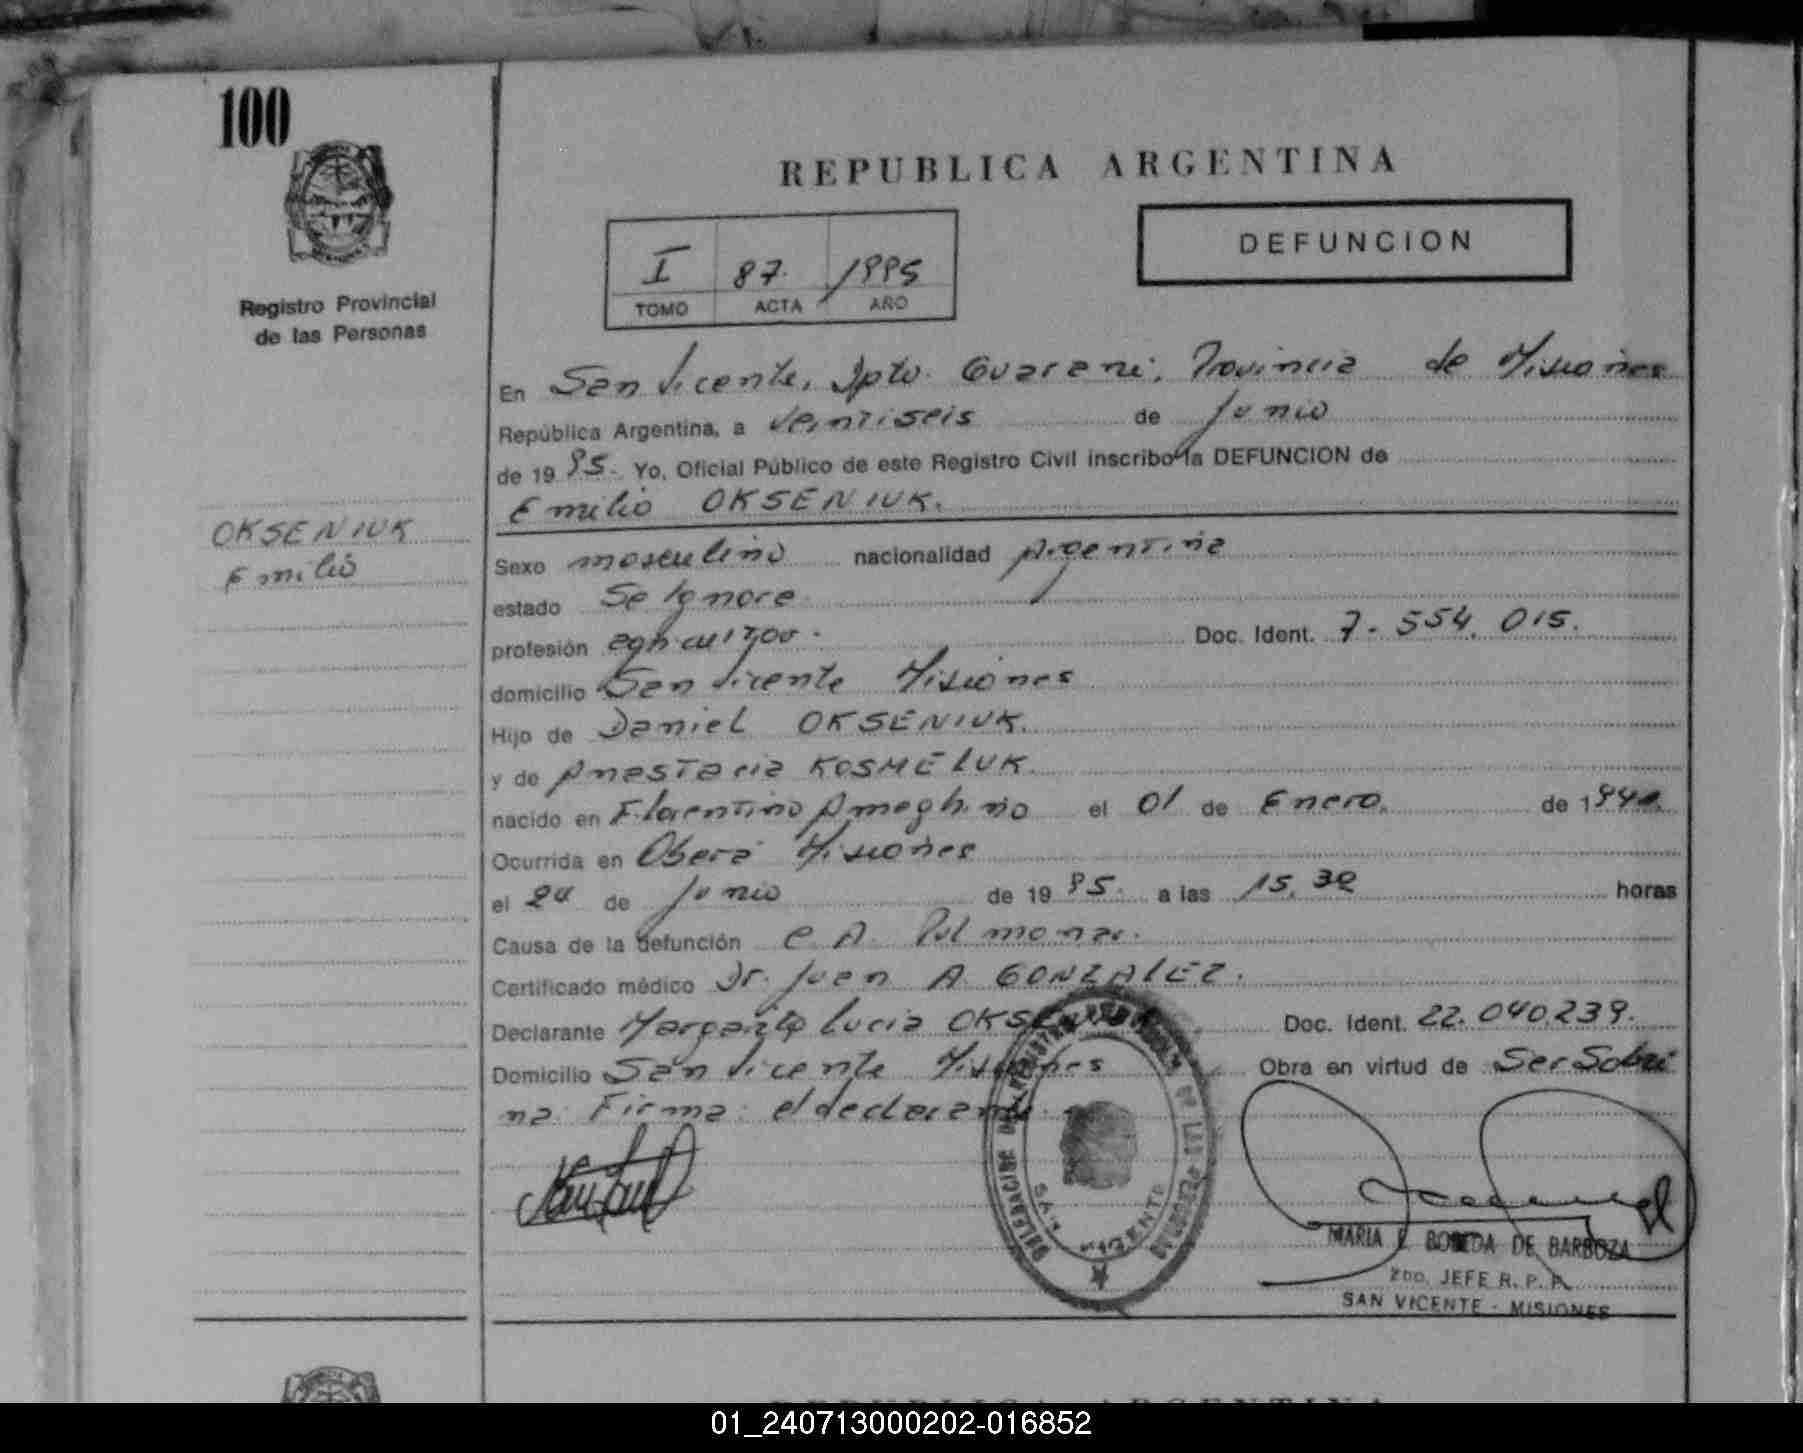 100
REPUBLICA ARGENTINA
DEFUNCION
I 87. 1995
TOMO ACTA AÑO
Registro Provincial
de las Personas
En San Vicente, Dpto. Guarani, Provincia de Misiones
República Argentina, a veintiseis de Junio
de 19 95. Yo, Oficial Público de este Registro Civil inscribo la DEFUNCION de
Emilio OKSENIUK.
OKSENIUK
Emilio
Sexo masculino nacionalidad Argentina
estado Se Ignora
profesión agricultor. Doc. Ident. 7. 554. 015.
domicilio San Vicente Misiones
Hijo de Daniel OKSENIUK.
y de Anastacia KOSMELUK.
nacido en Florentino Ameghino el 01 de Enero. de 194
Ocurrida en Oberá Misiones
el 24 de Junio de 19 95. a las 15,30 horas
Causa de la defunción C A Pulmonar.
Certificado médico Dr. Juan A. GONZALEZ.
Declarante Margarita Lucia Doc. Ident. 22.040.239.
Domicilio San Vicente Misiones Obra en virtud de Ser Sobri
na. Firma: el declarante.
DELEGACION DEL REGISTRO PROVINCIAL DE LAS PERSONAS
SAN VICENTE
MARIA E. DE BARBOZA
2do. JEFE R. P. P.
SAN VICENTE - MISIONES
REPUBLICA ARGENTINA
01_240713000202-016852